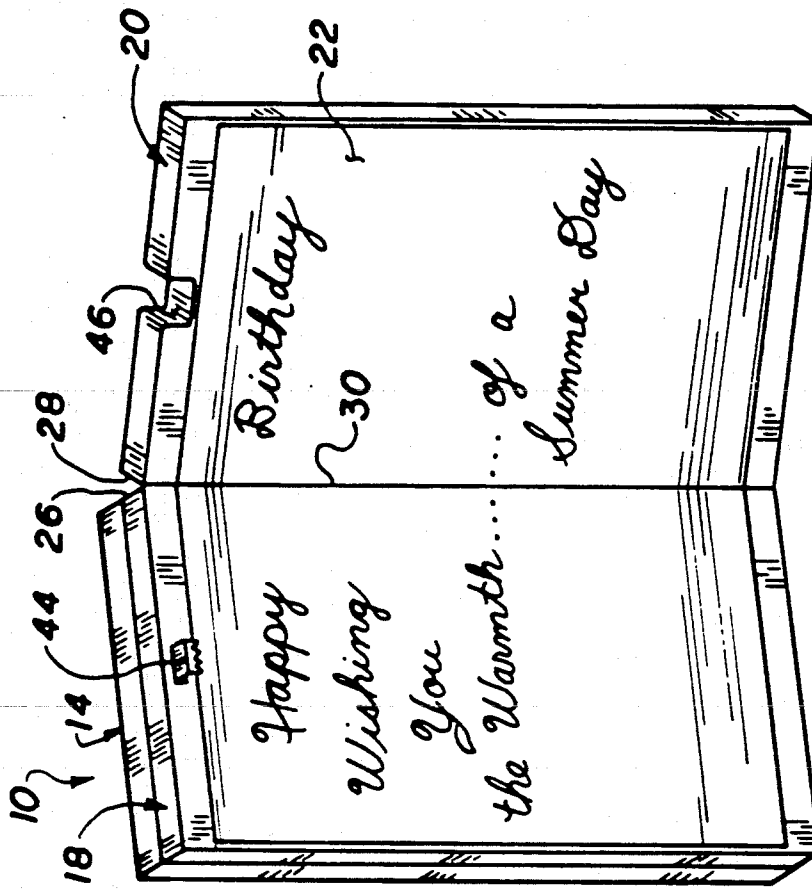 10
14
18
44
26
28
46
20
22
30
Happy Birthday
Wishing
You
the Warmth........ of a
Summer Day